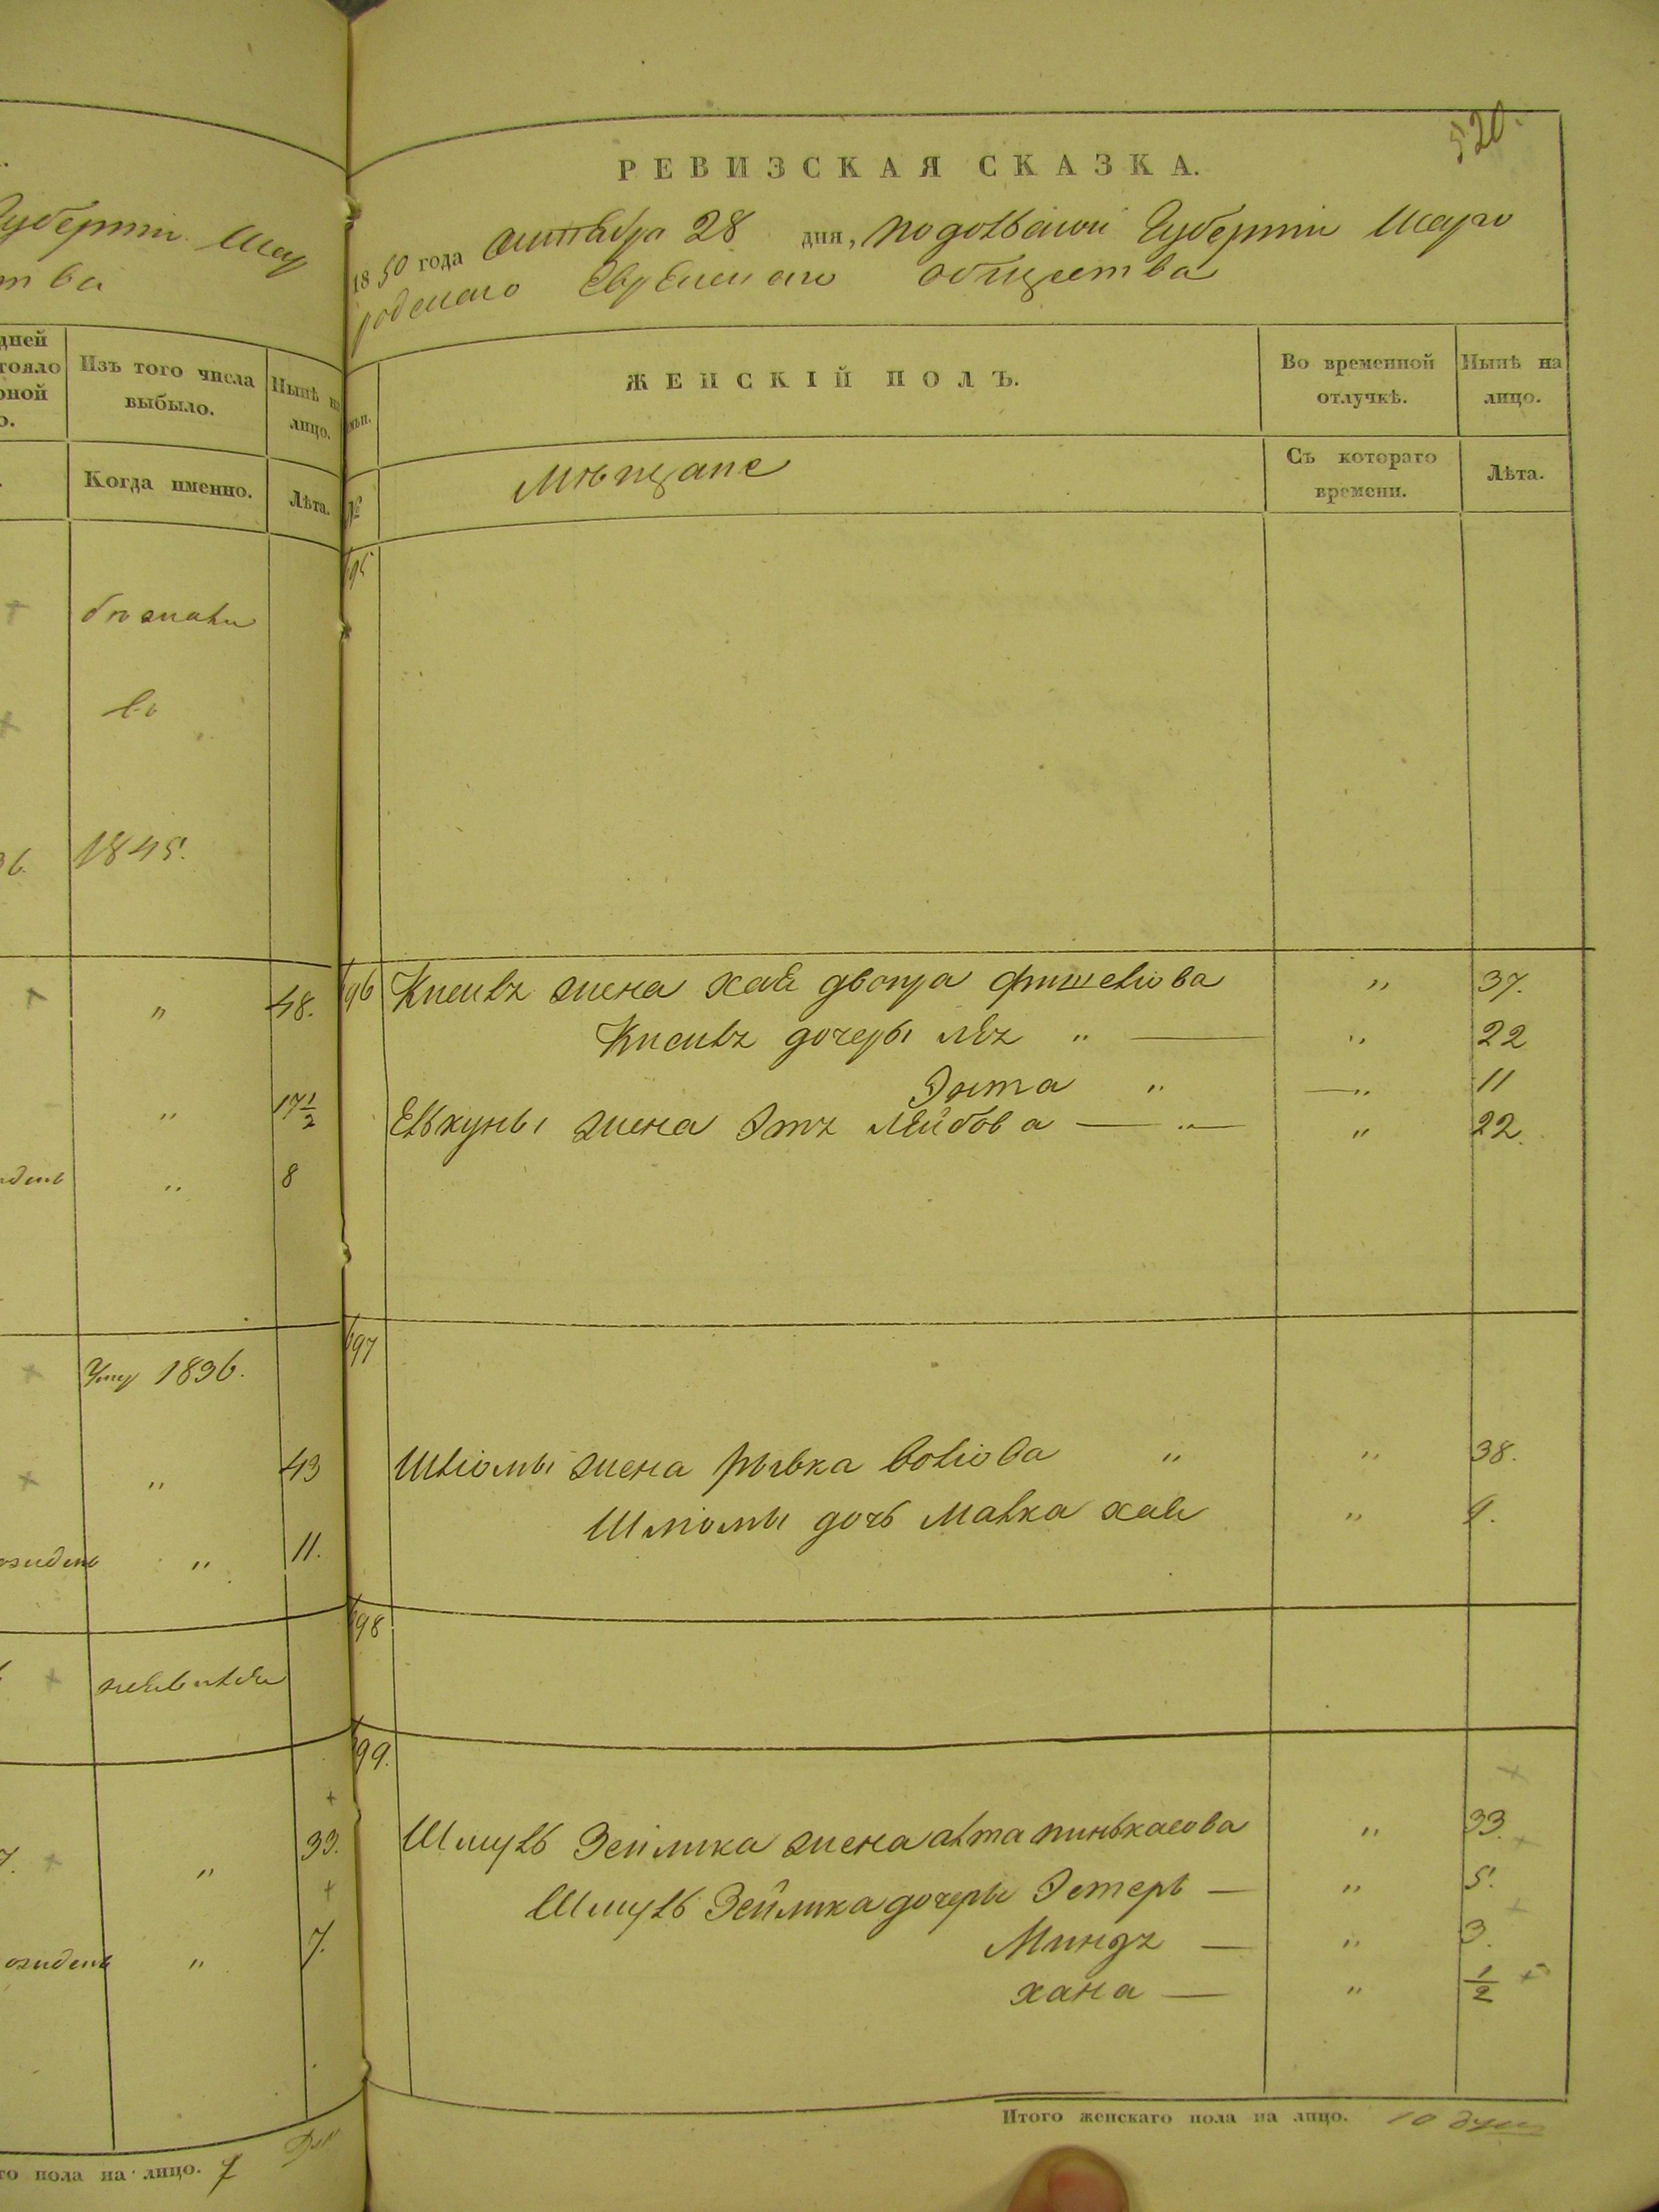 Губерніи Шар
тва
дней
тояло
рной
о.
Изъ того числа
выбыло.
Нынѣ на
лицо.
Когда именно.
Лѣта.
во
36. 1845.
" 48.
" 17 1/2
" 8
1836.
" 43
" 11.
" 33.
" 7.
го пола на лицо. 7
520.
РЕВИЗСКАЯ СКАЗКА.
1850 года октября 28 дня, Подольской Губерніи Шаро
родскаго Еврейскаго общества
ЖЕНСКІЙ ПОЛЪ.
Во временной
отлучкѣ.
Нынѣ на
лицо.
№
Мѣщане
Съ котораго
времени.
Лѣта.
695
696 жена Хая Двойра Фишелiова " 37.
дочеры Лея " — " 22
Энта " — " 11
жена Этя Лейбова — " — " 22.
697
Шліомы жена Рывка Волiова " " 38.
Шліомы дочь Малка Хая " 9.
698
699.
Шмуль Зейлика жена Алта Пинькасова " 33.
Шмуль Зейлика дочеры Эстеръ — " 5.
Миндя — " 3.
Хана — " 1/2
Итого женскаго пола на лицо. 10 душ